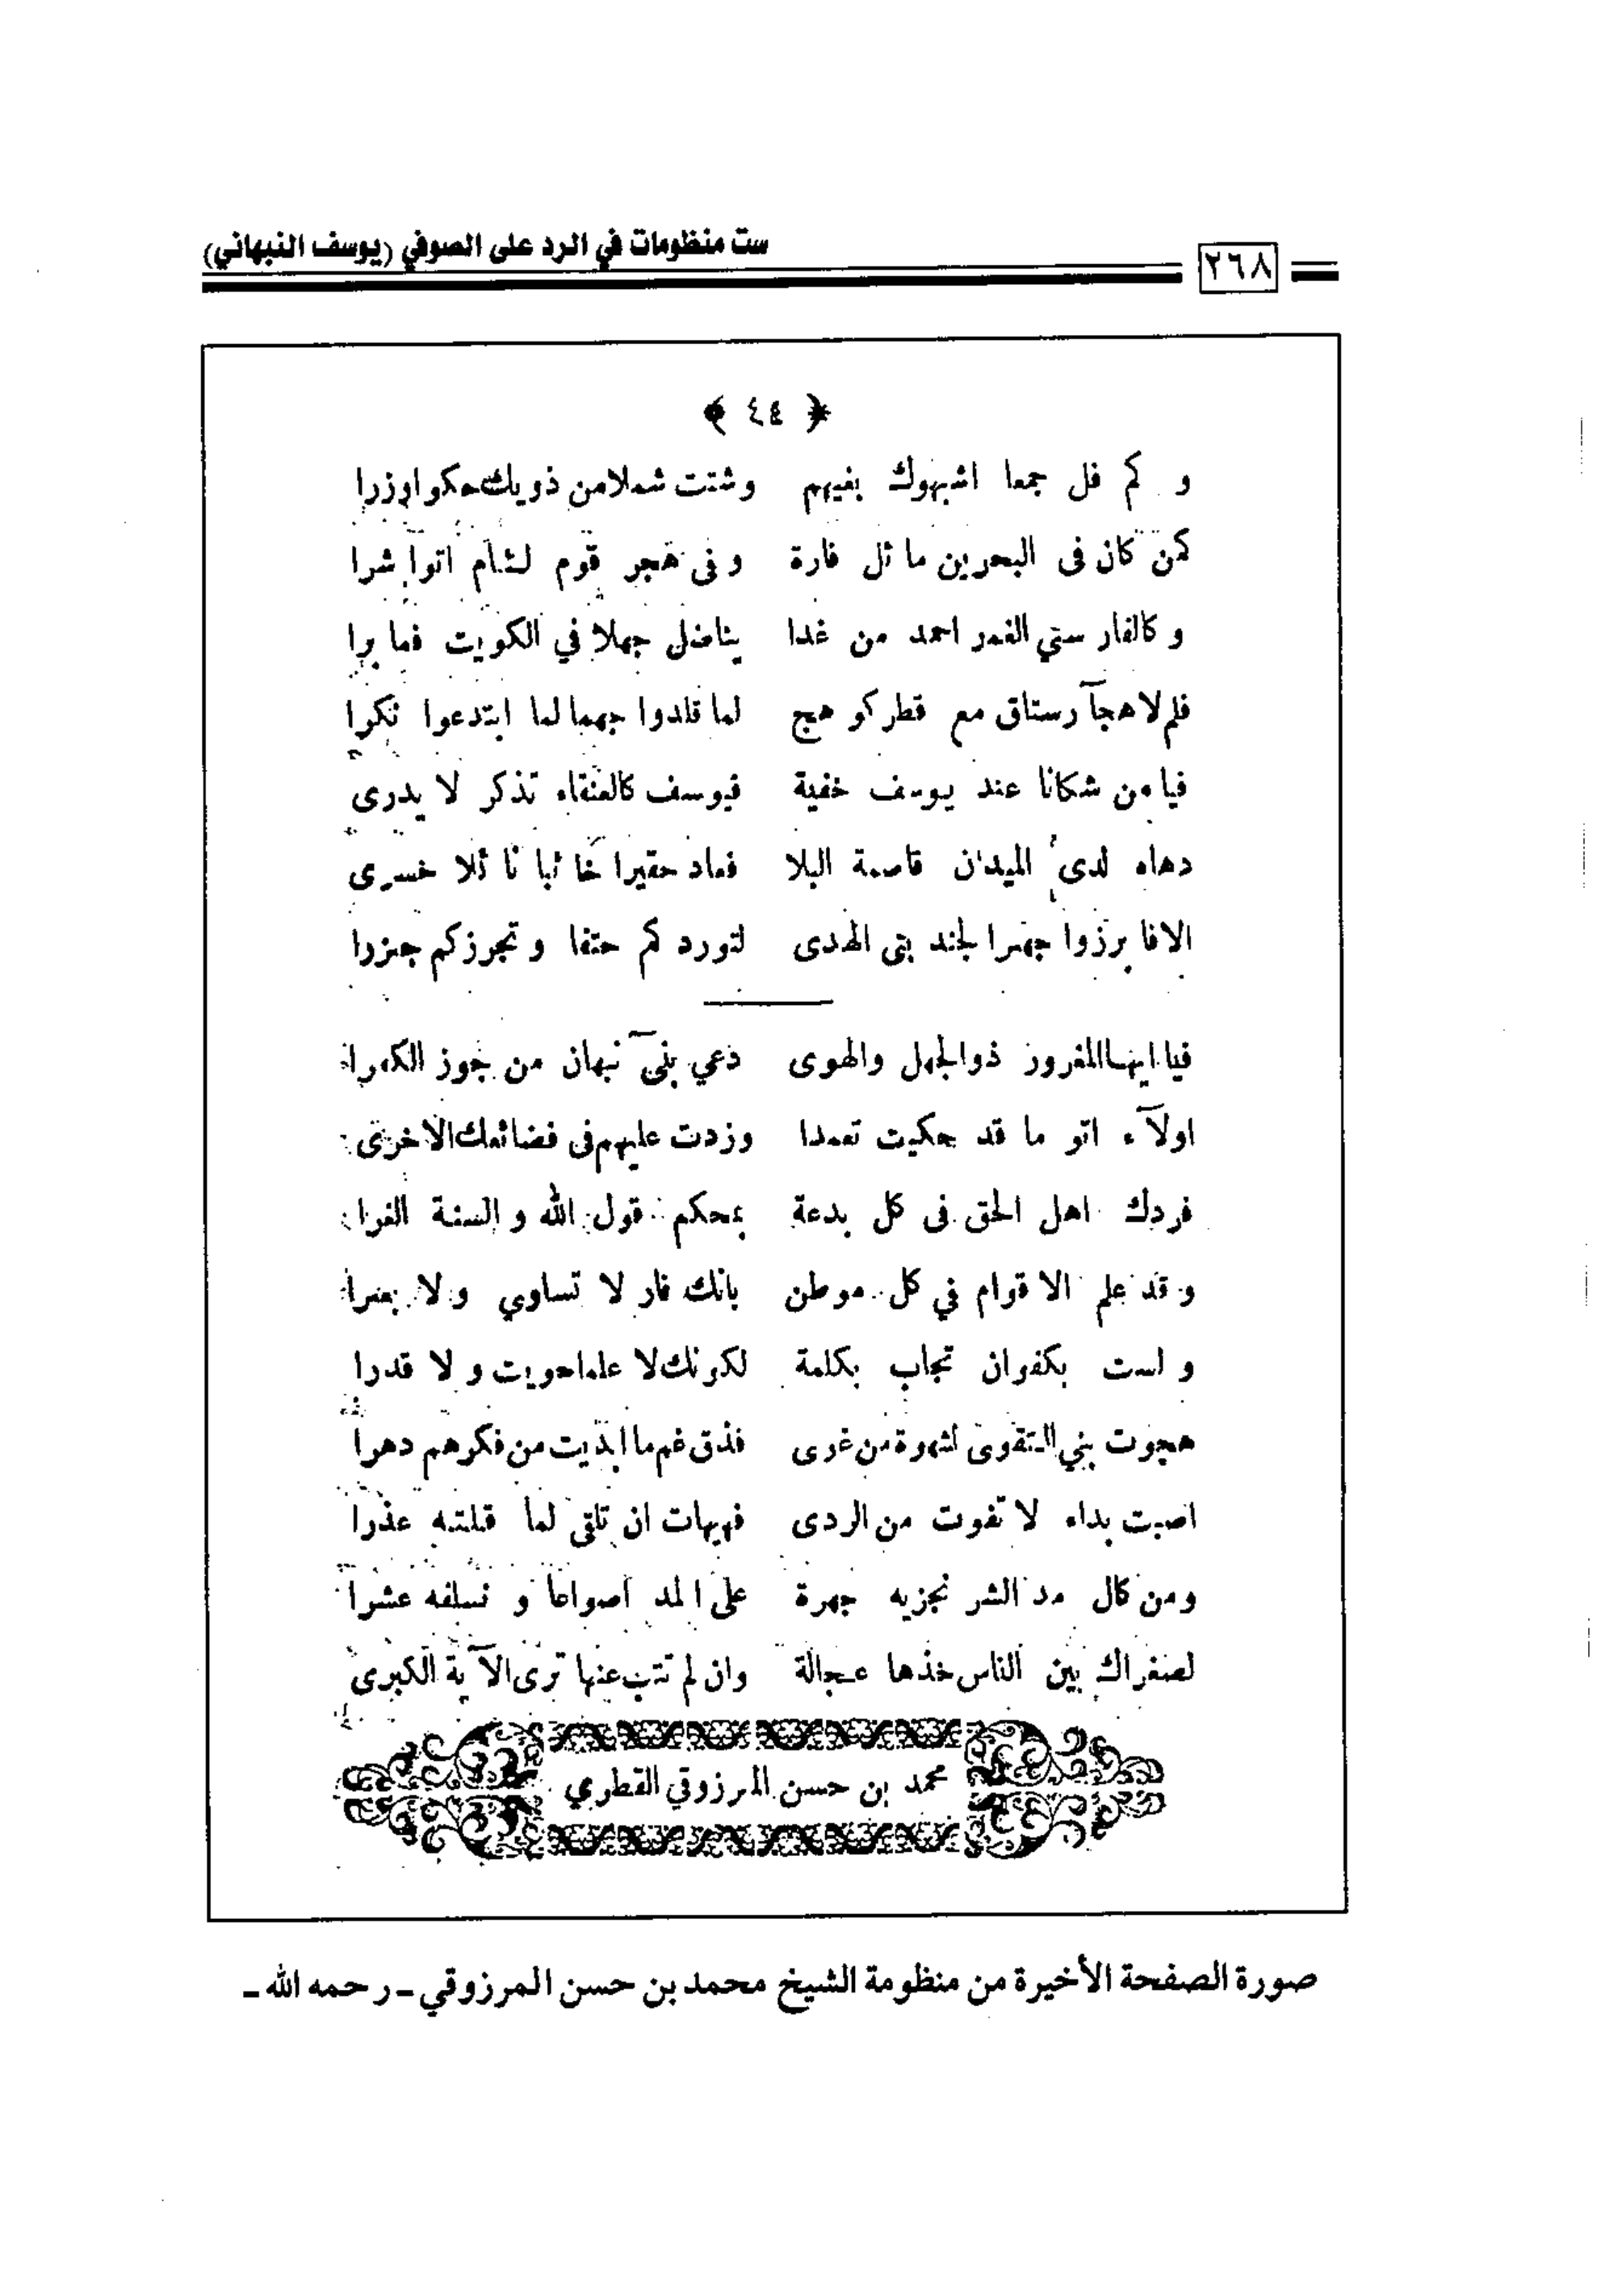 ست منظومات في الرد على الصوفي (يوسف النبهاني)
٢٦٨
﴿ ٤٤ ﴾
و كم فل جمعا اشبهوك بغيهم وشتت شملا من ذويك حكوا وزرا
كمن كان فى البحرين ما ئل فارة وفى هجر قوم لئام اتوا شرا
وكالفار ستي الغمر احمد من غدا يناضل جهلا في الكويت فما برا
فلم لا هجآ رستاق مع قطر كو هج لما قلدوا جهما لما ابتدعوا نكرا
فيا من شكانا عند يوسف خفية فيوسف كالعنقاء تذكر لا يدرى
دهاه لدى الميدان قاصمة البلا فعاد حقيرا خا ئبا نا ئلا خسرى
الا فا برزوا جهرا لجند بنى الهدى لتورد كم حتفا و تجوزكم جزرا
فيا ايها المغرور ذو الجهل والهوى دعي بنىٓ نبهان من جوز الكفرا
اولآء اتو ما قد حكيت تعمدا وزدت عليهم فى فضائعك الاخرى
فردك اهل الحق فى كل بدعة بمحكم قول الله و السنة الغرا
و قد علم الا قوام في كل موطن بانك فار لا تساوي ولا بعرا
و لست بكفوان تجاب بكلمة لكونك لا علما حويت و لا قدرا
هجوت بني التقوى لشهوة من غرى فذق غم ما ابديت من فكرهم دهرا
اصبت بداء لا تفوت من الردى فهيهات ان تلقى لما قلته عذرا
ومن كال مد الشر نجزيه جهرة على المد اصواعا و نسلفه عشرا
لصغراك بين الناس خذها عجالة وان لم تتب عنها ترى الآية الكبرى
محمد بن حسن المرزوقي القطري
صورة الصفحة الأخيرة من منظومة الشيخ محمد بن حسن المرزوقي ـ رحمه الله ـ